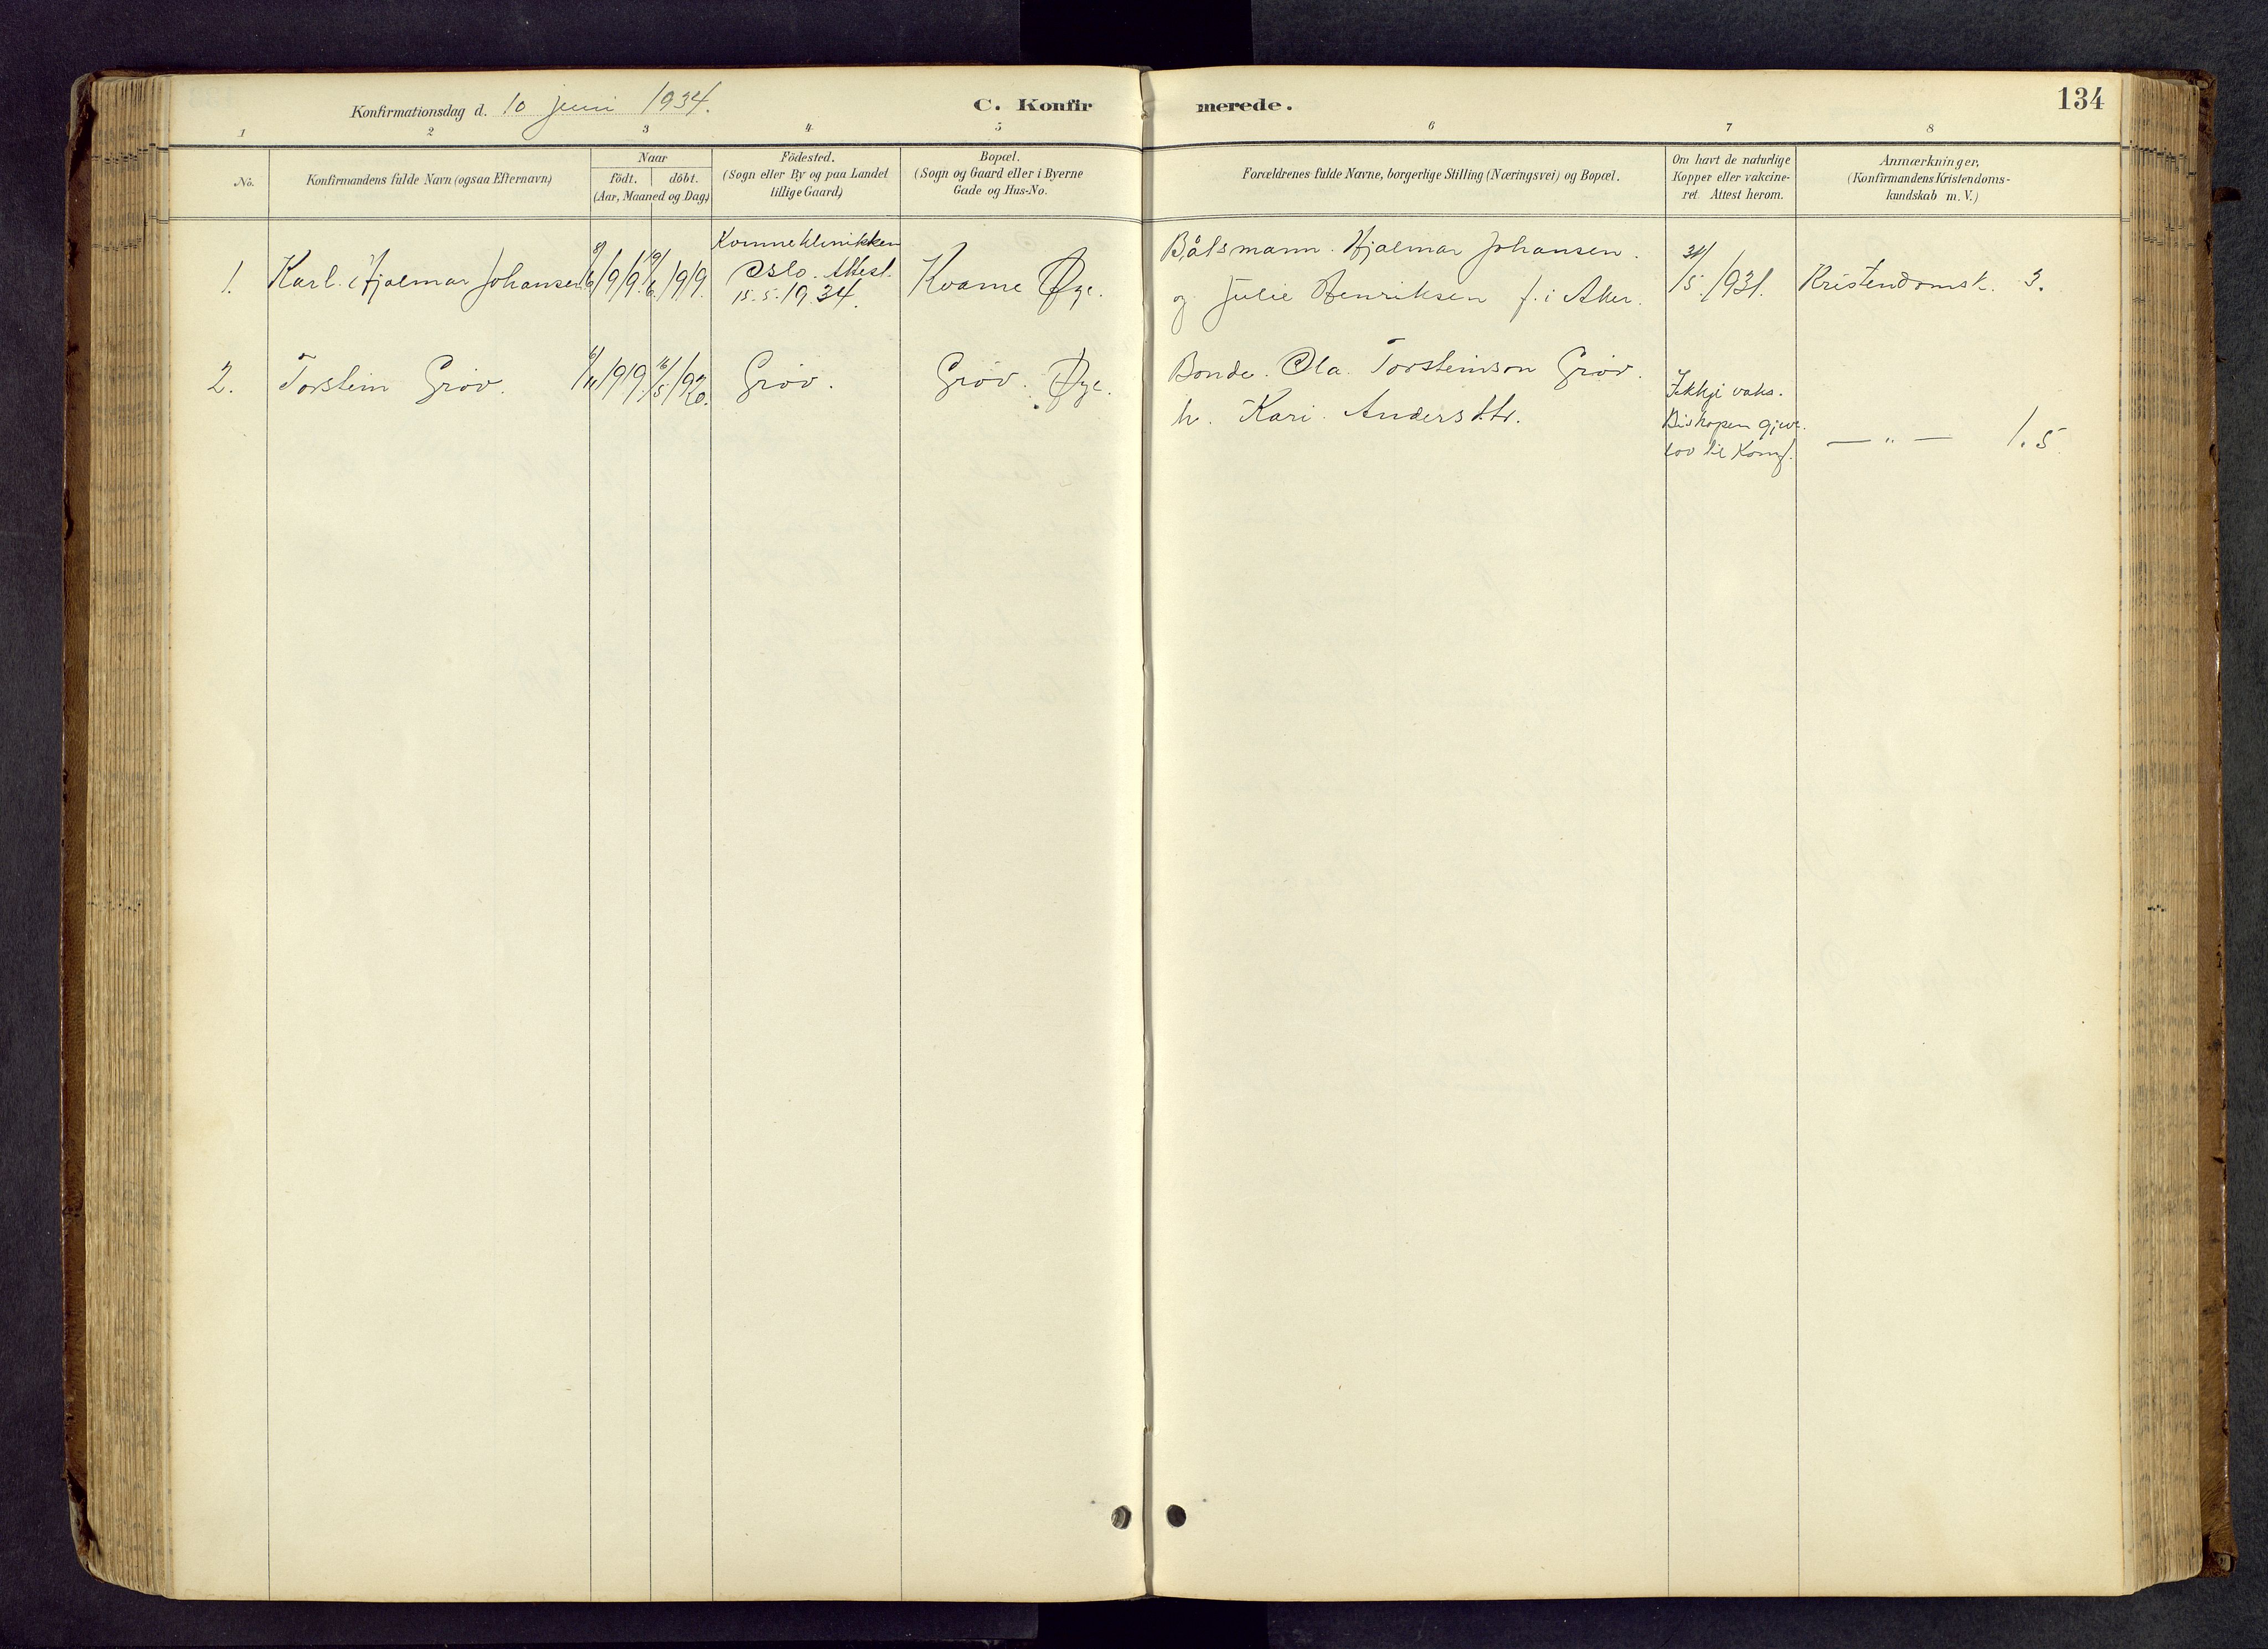 Konfirmationsdag d. 10 juni 1934.
C. Konfirmerede.
134
1 2 3 4 5 6 7 8
No.
Konfirmandens fulde Navn (ogsaa Efternavn)
Naar
Födt. döbt.
(Aar, Maaned og Dag)
Födested.
(Sogn eller By og paa Landet
tillige Gaard)
Bopæl.
(Sogn og Gaard eller i Byerne
Gade og Hus-No.
Forældrenes fulde Navne, borgerlige Stilling (Næringsvei) og Bopæl.
Om havt de naturlige
Kopper eller vakcine-
ret. Attest herom.
Anmærkninger,
(Konfirmandens Kristendoms-
kundskab m. V.)
1.
Karl Hjalmar Johansen
8/6 1919. 19/6. 1919.
Kvinneklinikken
Oslo. Attest.
15.5.1934.
Kvame Øye.
Båtsmann. Hjalmar Johansen.
og Julie Henriksen f. i Aker.
31/5. 1931.
Kristendomsk. 3.
2.
Torstein Grøv.
6/11 1919. 16/5 1920.
Grøv.
Grøv. Øye.
Bonde. Ola. Torsteinson Grøv.
h. Kari. Andersdtr.
Ikkje vaks.
Bispopen gjeve
lov til Konf.
— „ — 1.5